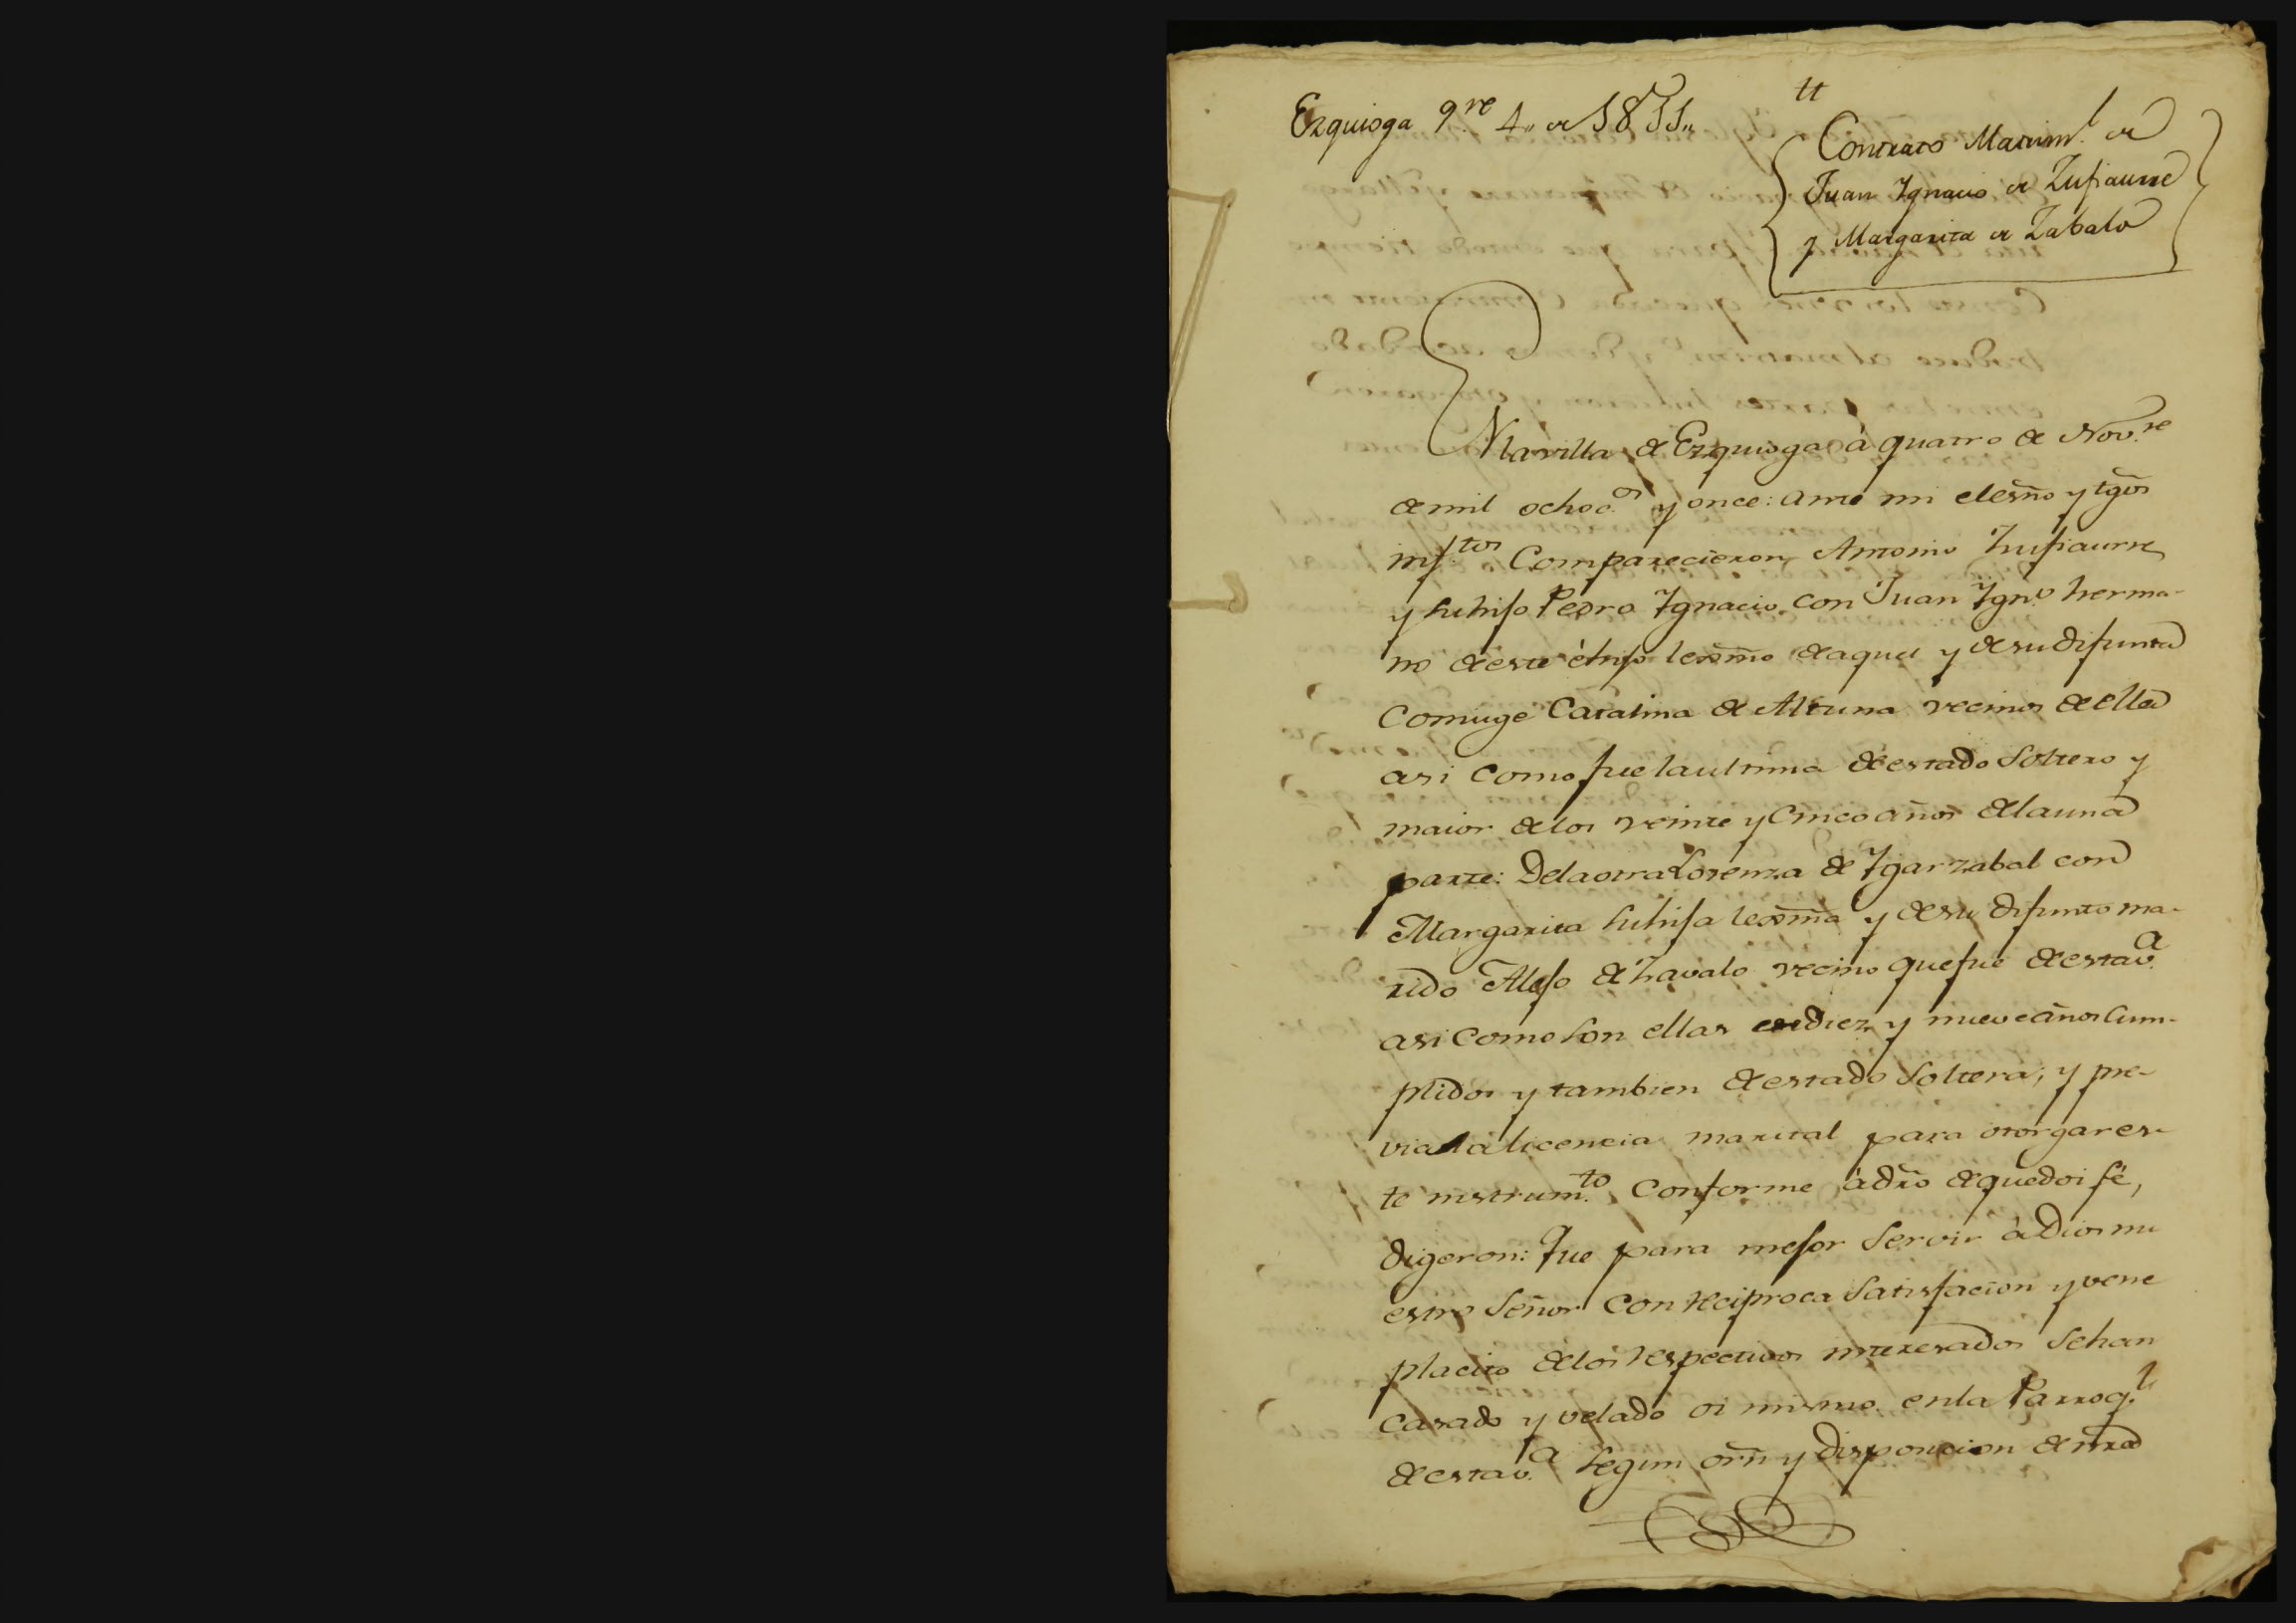 Ezquioga 9.re 4,, de 1811,,
tt
Contrato Matrim.l de
Juan Ygnacio de Zufiaurre
y Margarita de Zabalo
Nlavilla de Ezquioga à quatro de Nov.re
de mil ochoc.os y once: ante mi elesño y tgõs
inf.tos Comparecieron Antonio Zufiaurre
y suhijo Pedro Ygnacio con Juan Ygn.o herma-
no deeste éhijo lexmo deaquel y desudifunta
Comuge Catalina de Altuna vecinos deella
asi como fue laultima deestado Soltero y
maior delos veinte y Cinco años delauna
parte: Delaotra Lorenza de Ygarzabal con
Margarita suhija lexma y desu difunto ma-
rido Alejo de Zavalo vecino quefue deestav.a
asi Como son ellas dediez y nueve años Cum-
plidos y tambien deestado Soltera; y pre-
via la licencia marital para otorgar es-
te instrum.to Conforme àdro dequedoi fé,
digeron: Que para mejor Servir àDios nu
estro Señor Con reciproca Satisfacion y vene
placito delos respectivos interesados Sehan
Casado y velado oi mismo enla Parroq.l
deestav.a Segun orn y disposicion denra